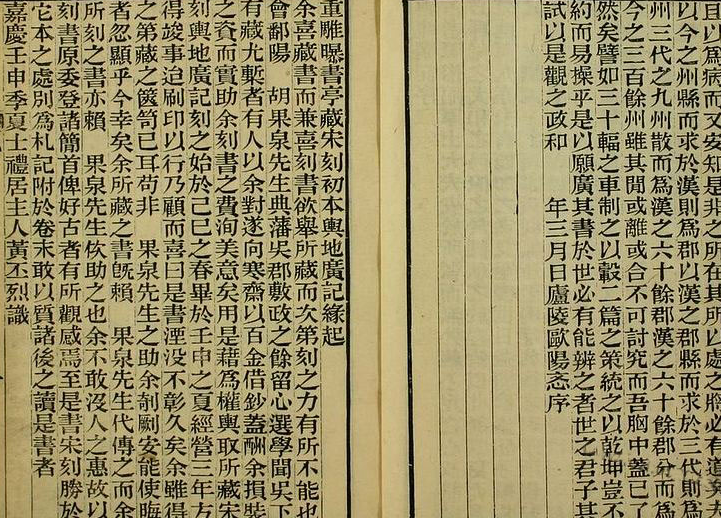 且以爲病而又安知是非之所在其所以處之將必有道矣夫
以今之州縣而求於漢則爲郡以漢之郡縣而求於三代則爲
州三代之九州散而爲漢之六十餘郡漢之六十餘郡分而爲
今之三百餘州雖其閒或離或合不可討究而吾胸中蓋已了
然矣譬如三十輻之車制之以轂二篇之策統之以乾坤豈不
約而易操乎是以願廣其書於世必有能辨之者世之君子其
試以是觀之政和 年三月日廬陵歐陽忞序
重雕曝書亭藏宋刻初本輿地廣記緣起
余喜藏書而兼喜刻書欲舉所藏而次第刻之力有所不能也
會鄱陽 胡果泉先生典藩吳郡敷政之餘留心選學聞吳下
有藏尤槧者有人以余對遂向寒齋以百金借鈔蓋酬余損裝
之資而實助余刻書之費洵美意矣用是藉爲權輿取所藏宋
刻輿地廣記刻之始於己巳之春畢於壬申之夏經營三年方
得竣事迨刷印以行乃顧而喜曰是書湮没不彰久矣余雖得
之第藏之篋笥已耳苟非 果泉先生之助余剞劂安能使晦
者忽顯乎今幸矣余所藏之書旣賴 果泉先生代傳之而余
所刻之書亦賴 果泉先生佽助之也余不敢沒人之惠故以
刻書原委登諸簡首俾好古者有所觀感焉至是書宋刻勝於
它本之處別爲札記附於卷末敢以質諸後之讀是書者
嘉慶壬申季夏士禮居主人黃丕烈識